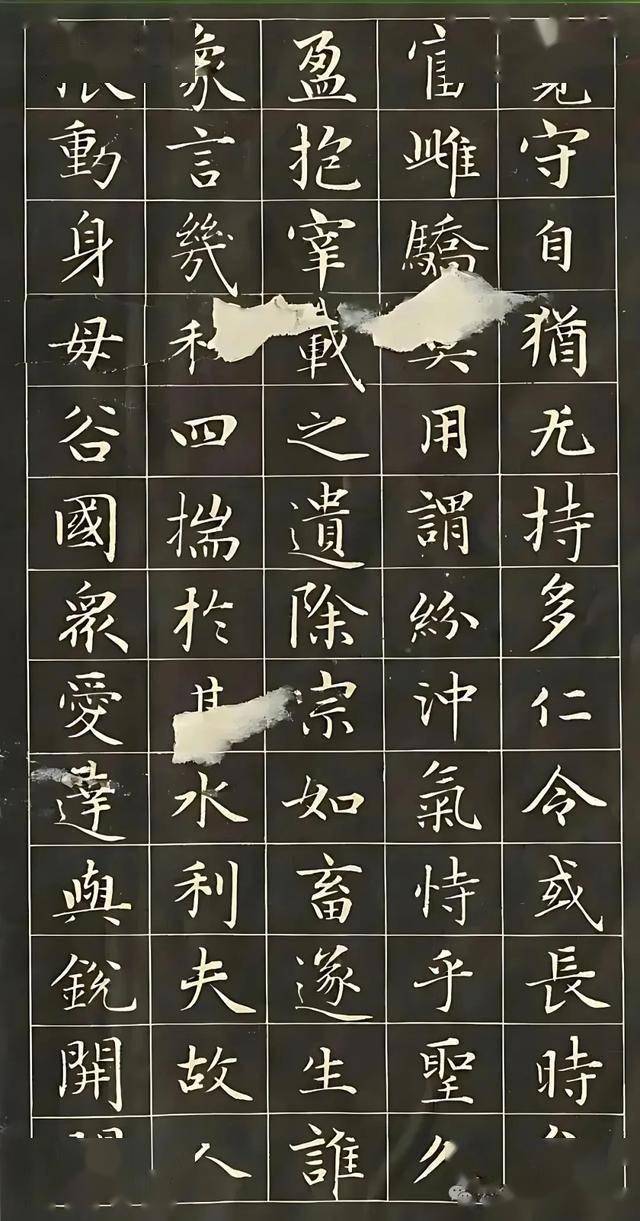 守自猶无持多仁令或長時
雌驕用謂紛沖氣恃乎聖
盈抱宰載之遺除宗如畜遂生誰
象言幾四揣於其水利夫故人
動身母谷國眾愛達與銳開